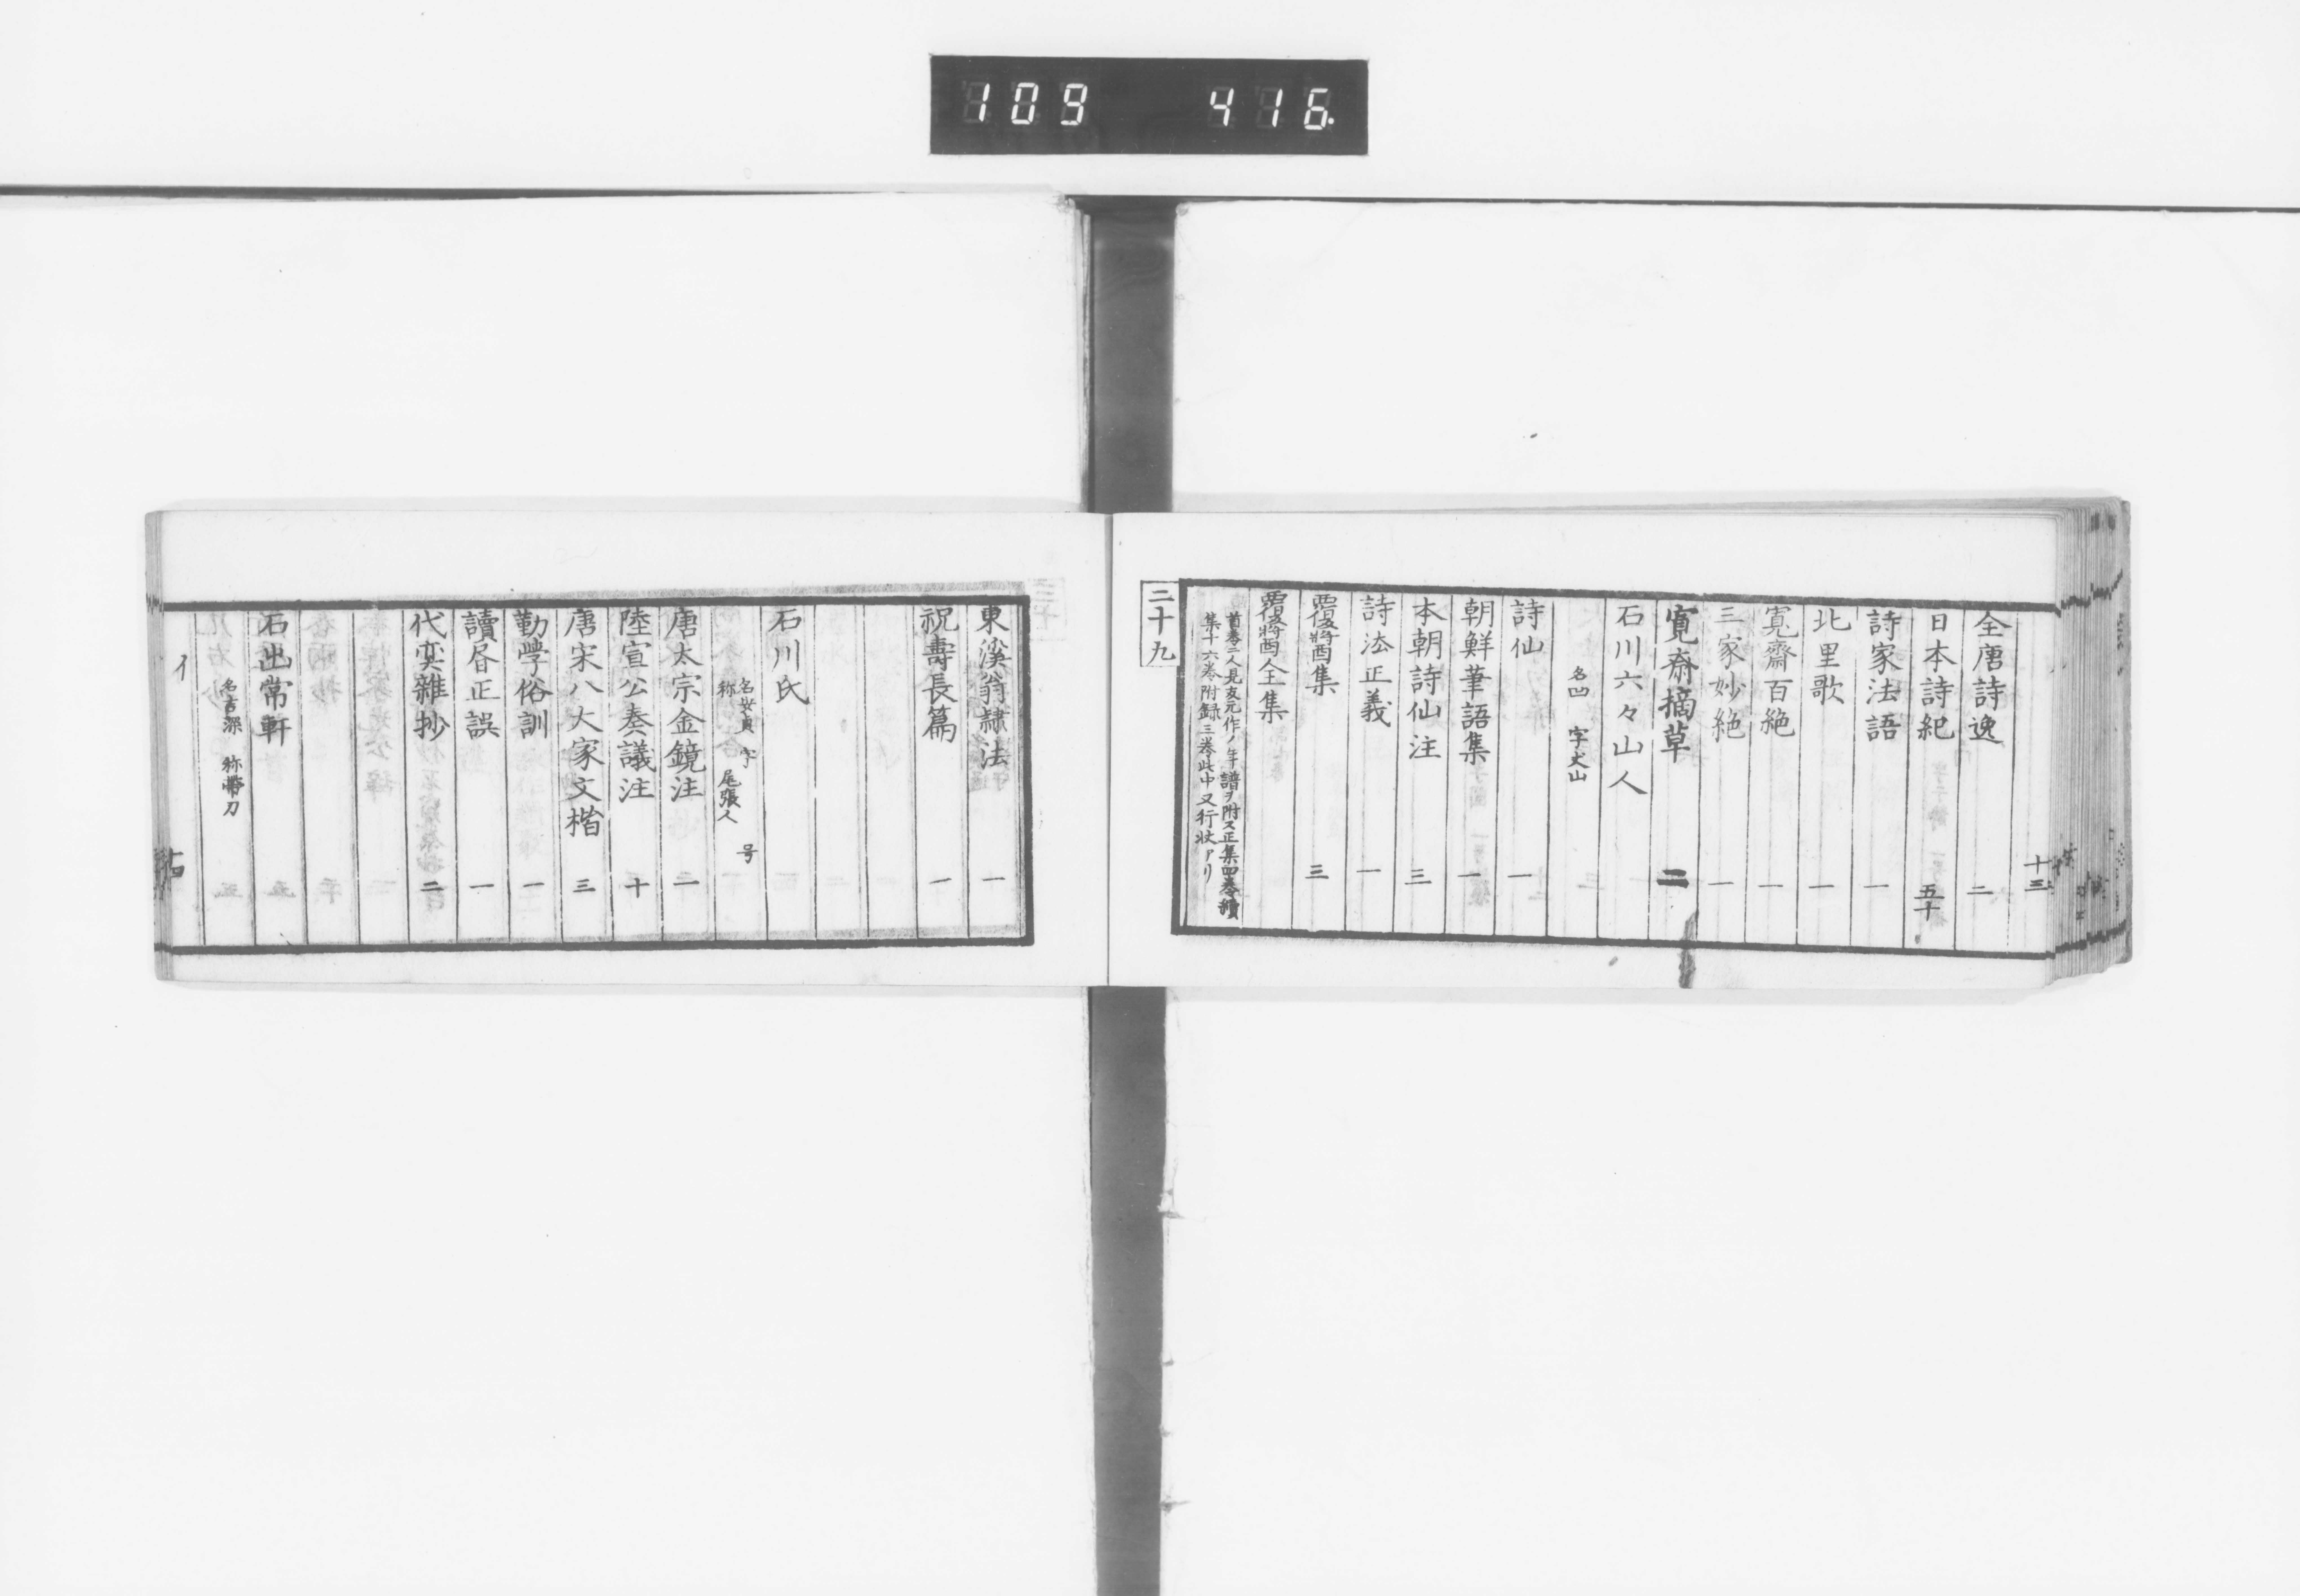 109 416
十三
全唐詩逸 二
日本詩紀 五十
詩家法語 一
北里歌 一
寛齋百絶 一
三家妙絶 一
寛斎摘草 二
石川六々山人
名凹 字丈山
詩仙 一
朝鮮筆語集 一
本朝詩仙注 三
詩法正義 一
覆醤集 三
覆醤全集
首巻ニ人見友元作ノ年譜ヲ附ス正集四巻續
集十六巻附録三巻此中又行状アリ
二十九
東溪翁隷法 一
祝壽長篇 一
石川氏
名安貞 字 号
称 尾張人
唐太宗金鏡注 二
陸宣公奏議注 十
唐宋八大家文楷 三
勤學俗訓 一
讀唇正誤 一
代奕雜抄 二
石出常軒
名吉深 称帯刀
イ